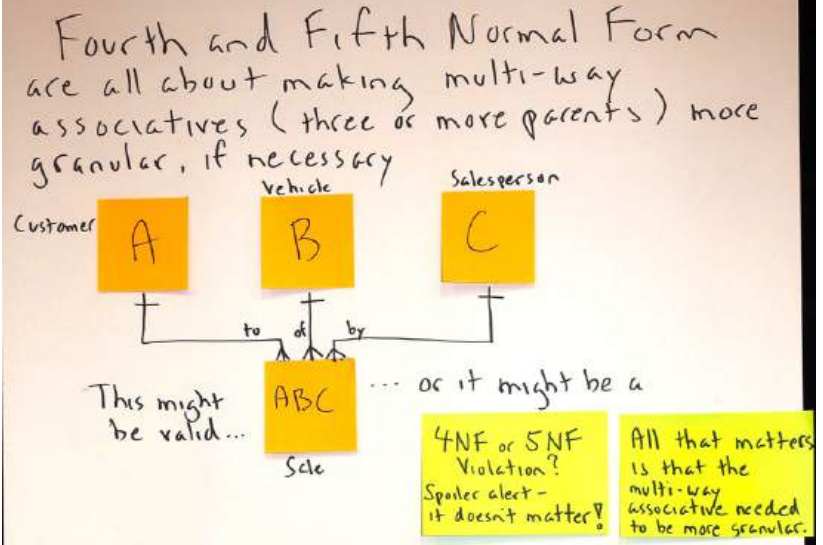 Fourth and Fifth Normal Form
are all about making multi-way
associatives (three or more parents) more
granular, if necessary
Customer
Vehicle
Salesperson
A
B
C
to
of
by
This might
be valid...
ABC
Sale
... or it might be a
4NF or 5NF
Violation?
Spoiler alert -
it doesn't matter!
All that matters
is that the
multi-way
associative needed
to be more granular.